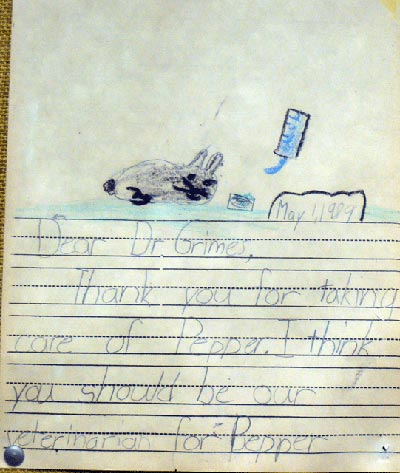 May 1, 1989
Dear Dr Grimes,
Thank you for taking
care of Pepper. I think
you should be our
veterinarian for Pepper